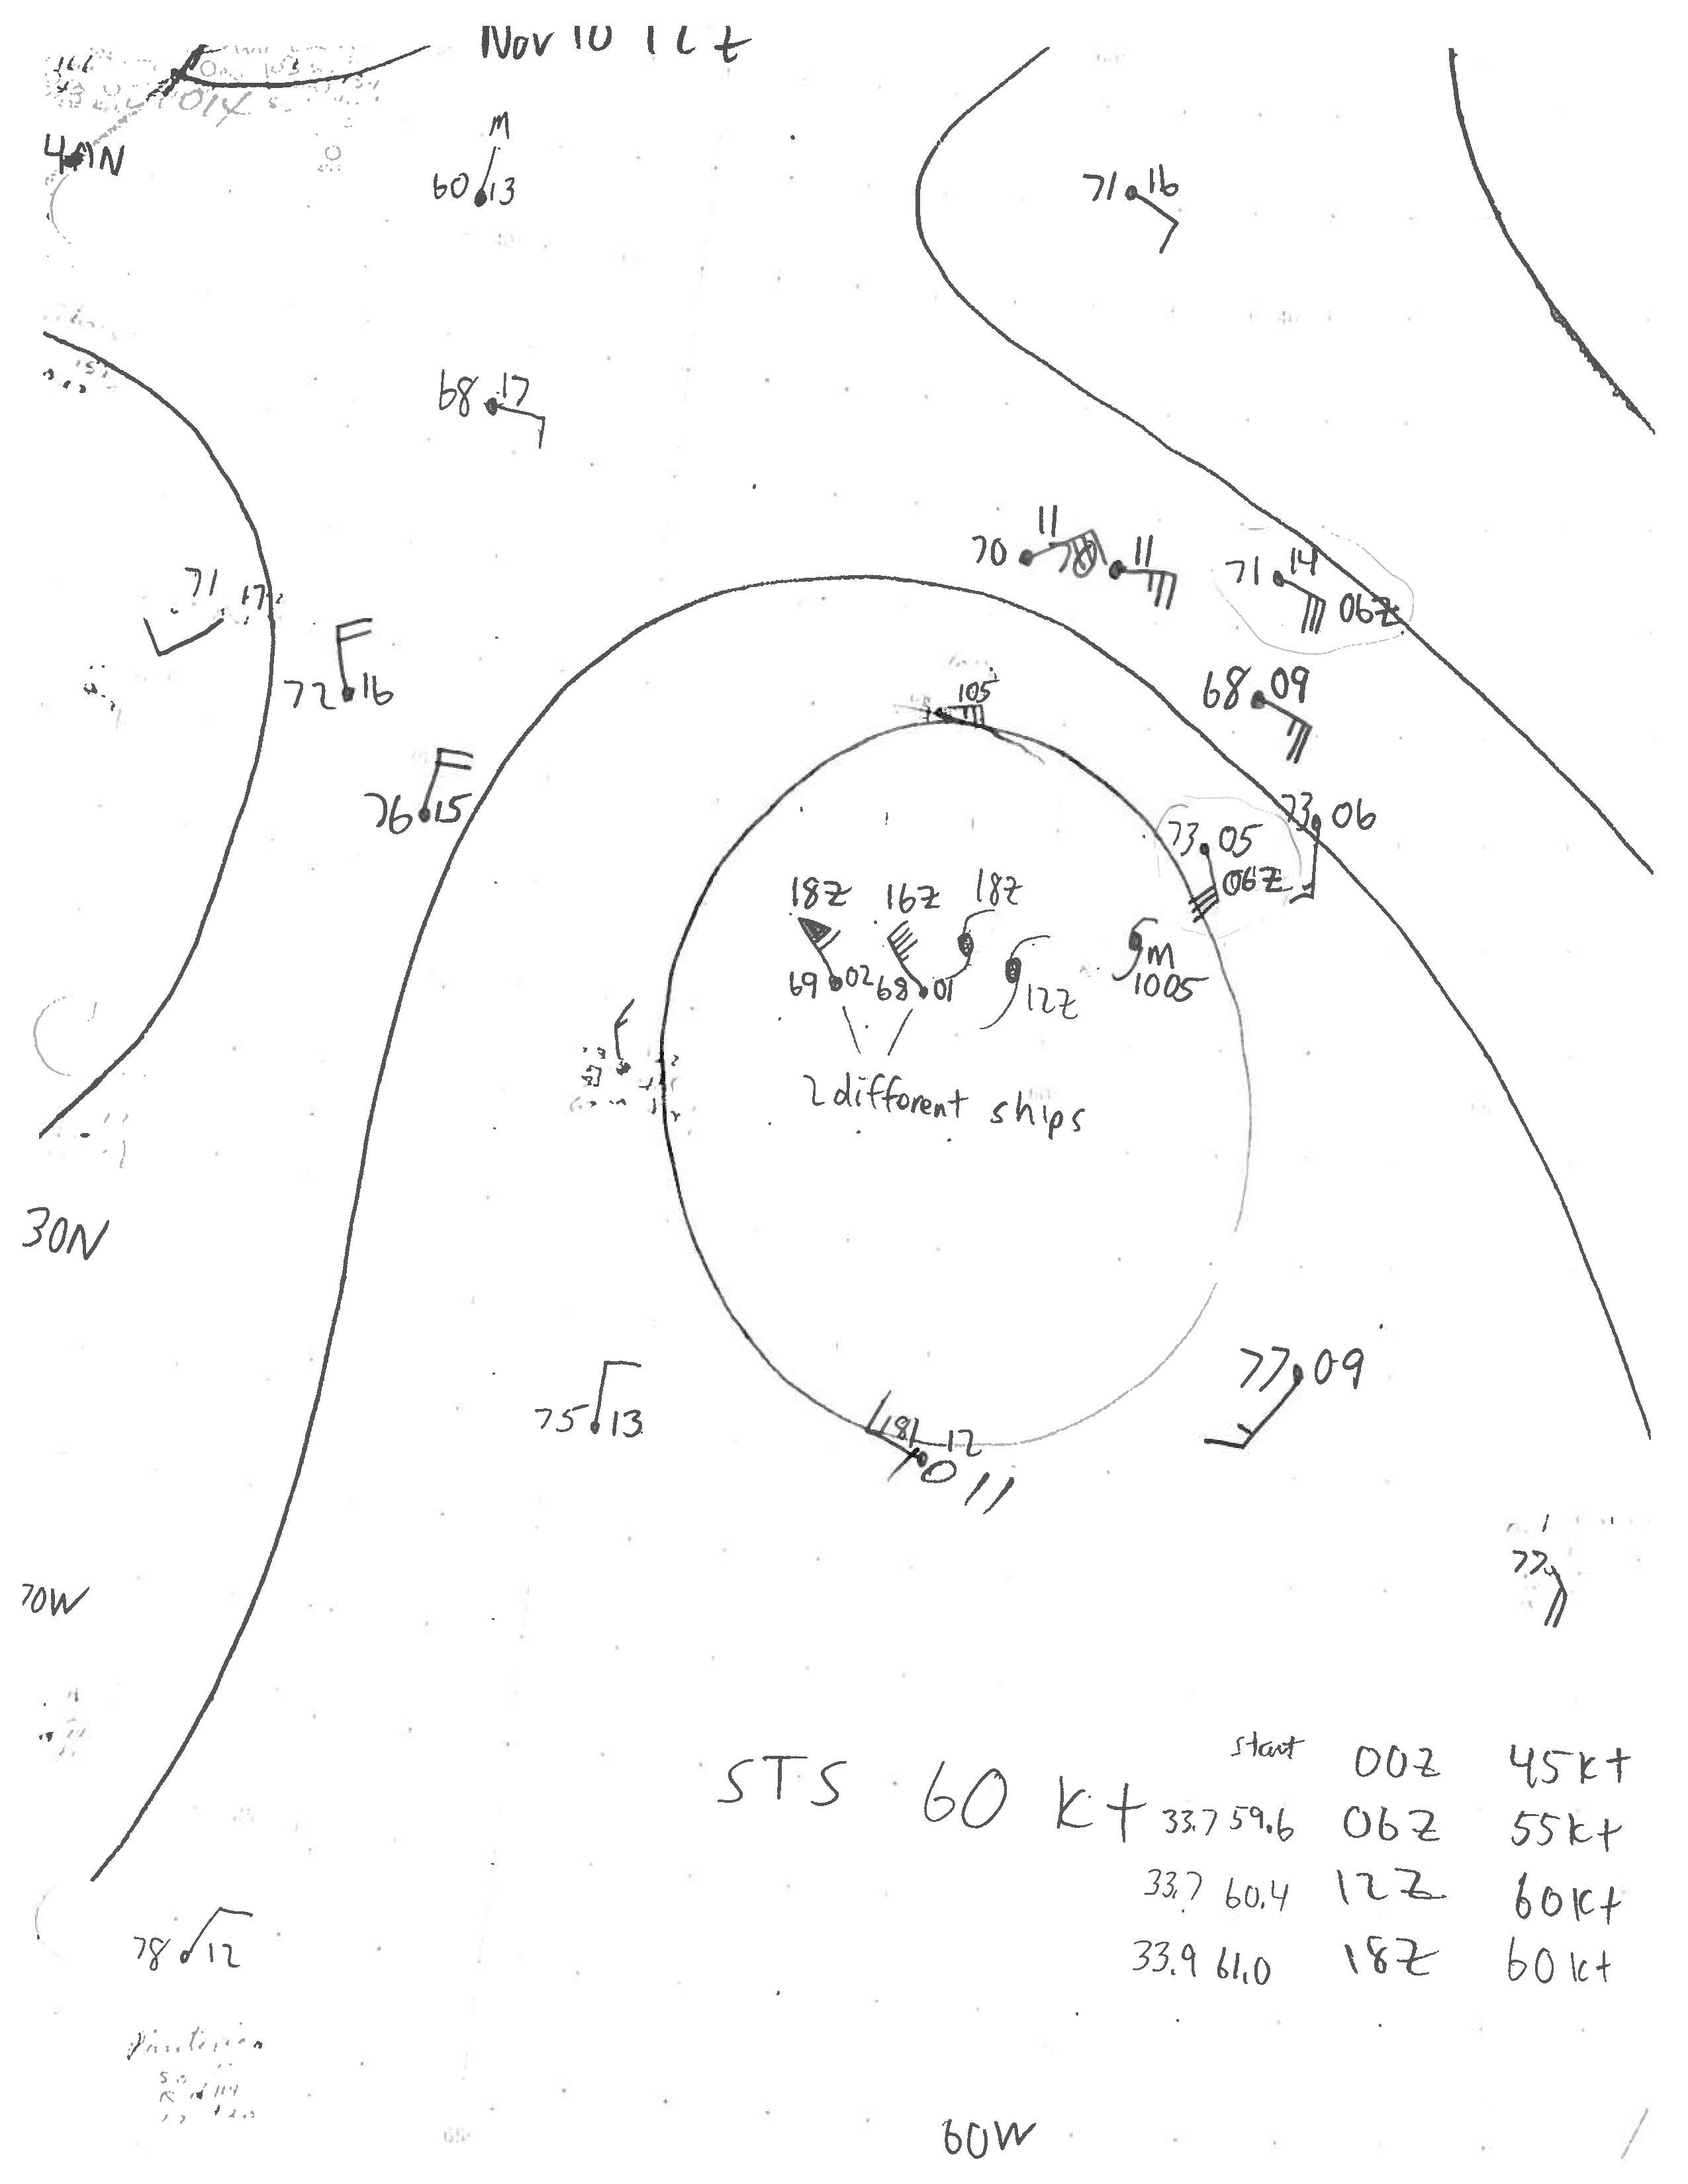 Nov 10 12Z
014
40N
M
60 13
71 16
68 17
11 11
70 70
71 14
06Z
71
72 16
68 09
105
76 15
73 06
73 05
06Z
18Z 16Z 18Z
M
69 02 68 01
12Z 1005
2 different ships
30N
77 09
75 13
18 12
011
77
70W
start 00Z 45kt
STS 60 kt
33.7 59.6 06Z 55kt
33.7 60.4 12Z 60kt
33.9 61.0 18Z 60kt
78 12
60W